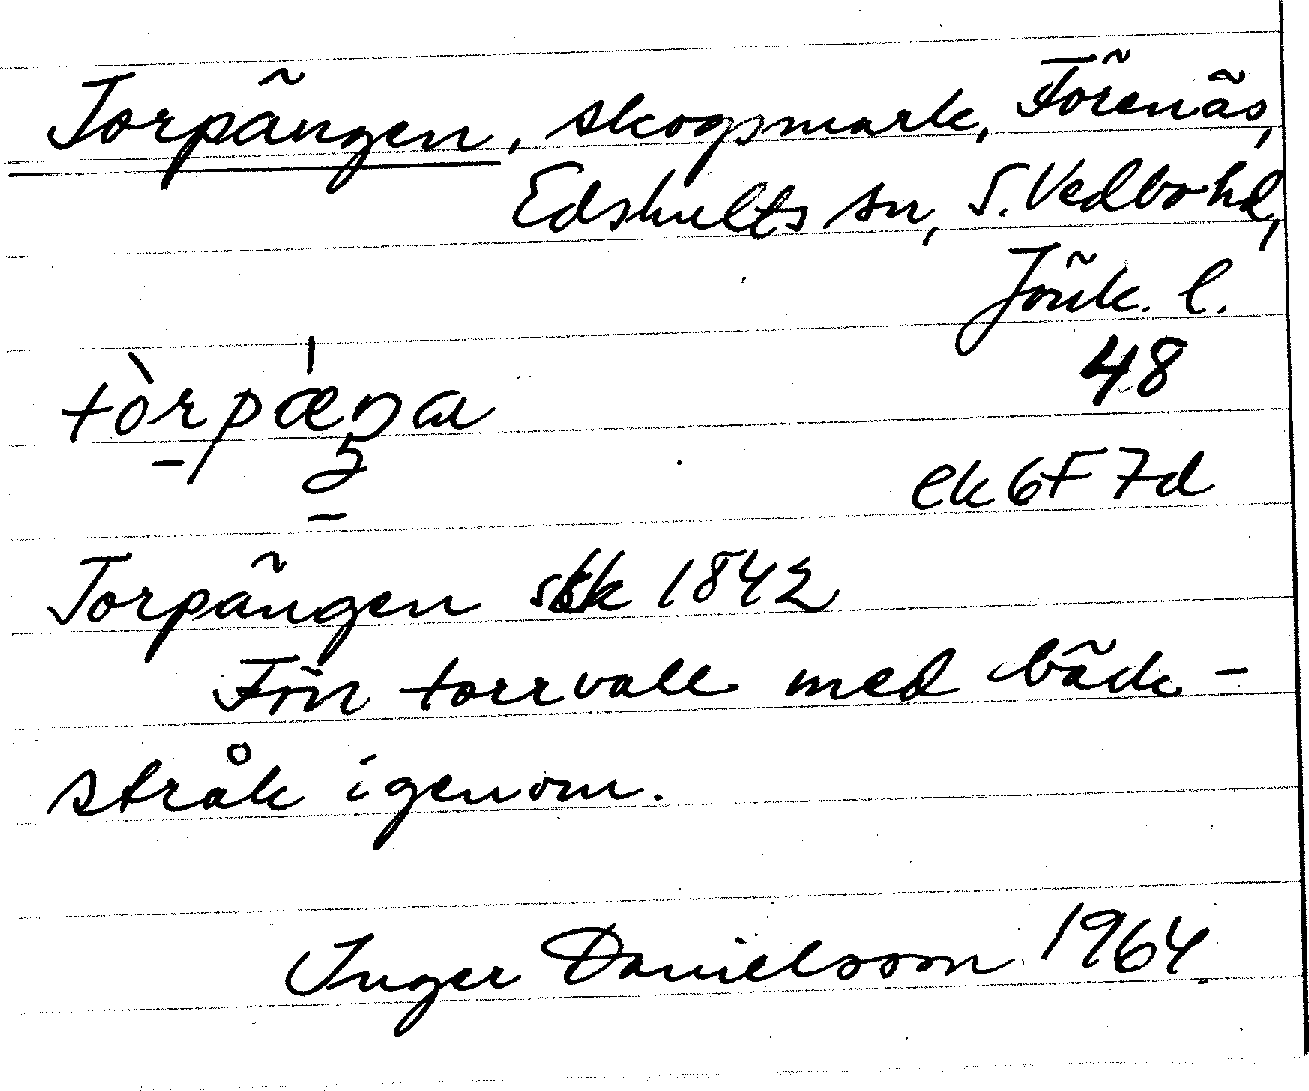 Torpängen, skogsmark, Förenäs,
Edshults sn, S. Vedbo hd,
Jönk. l.
48
ek 6F 7d
Torpängen stk 1842
Förr torrvall med bäck-
stråk igenom.
Inger Danielsson 1964